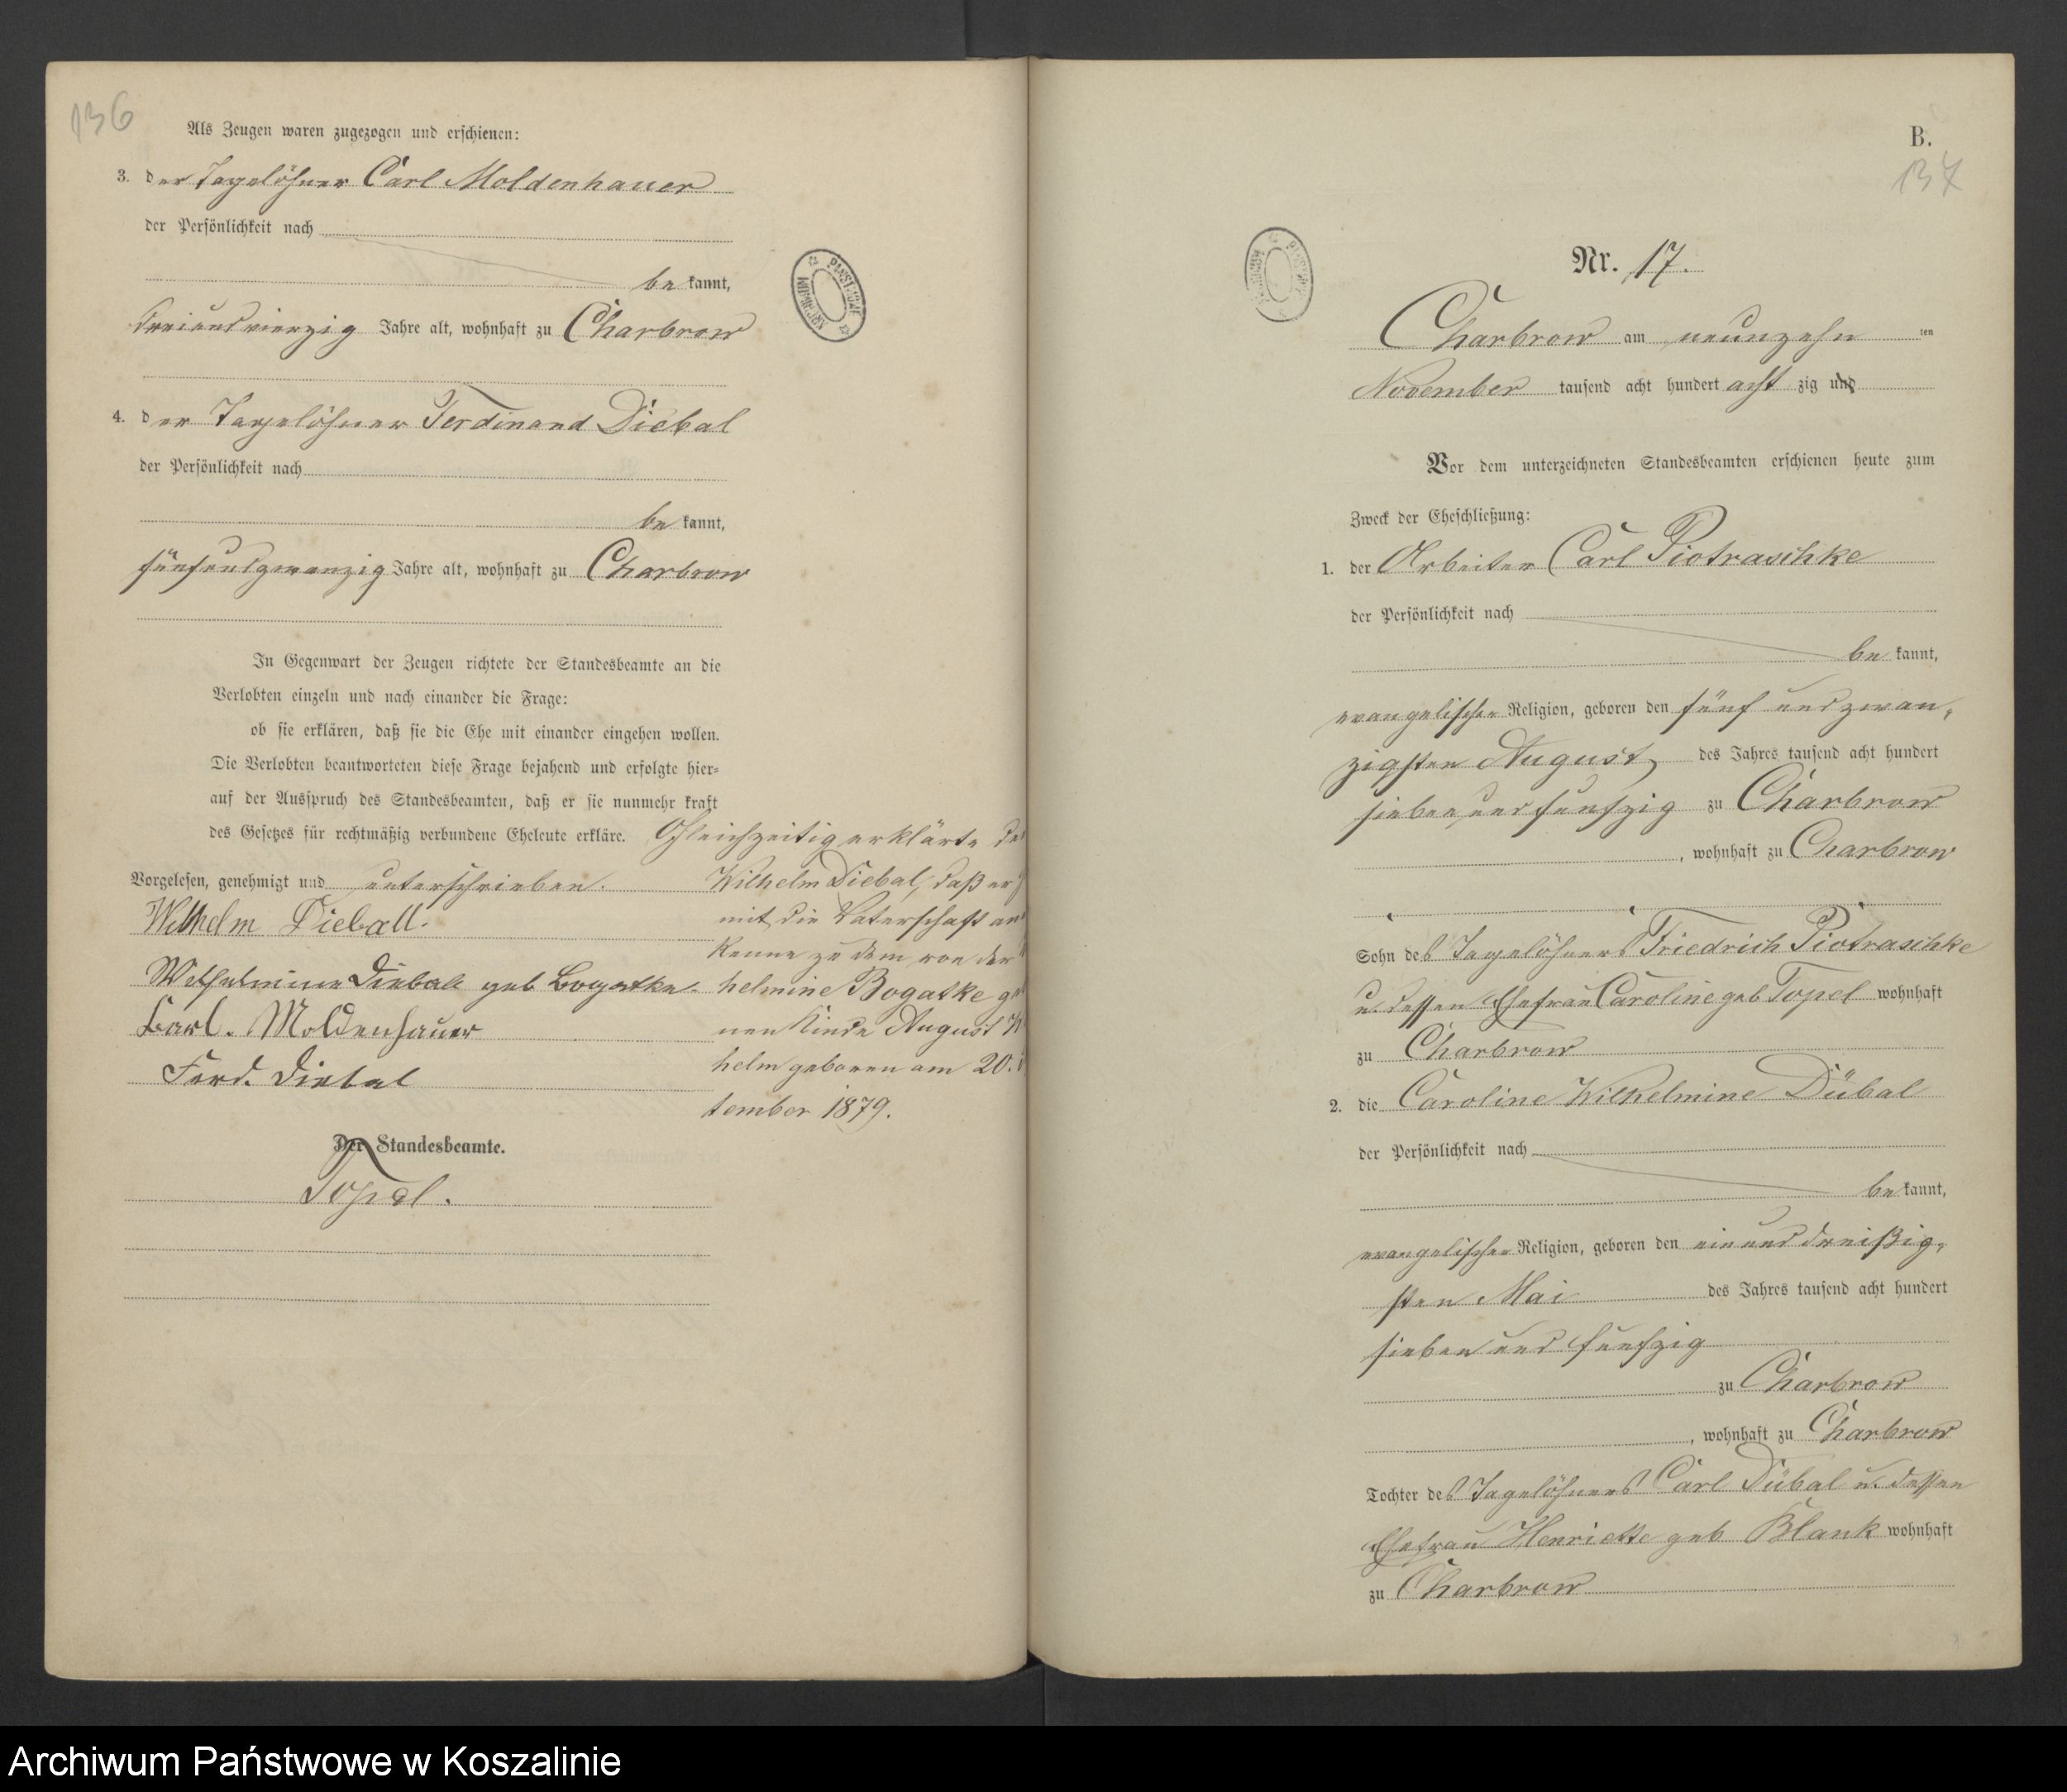 136
Als Zeugen waren zugezogen und erschienen:
3. der Tagelöhner Carl Moldenhauer
der Persönlichkeit nach
be kannt,
dreiundvierzig Jahre alt, wohnhaft zu Charbrow
4. der Tagelöhner Ferdinand Diebal
der Persönlichkeit nach
be kannt,
fünfundzwanzig Jahre alt, wohnhaft zu Charbrow
In Gegenwart der Zeugen richtete der Standesbeamte an die
Verlobten einzeln und nach einander die Frage:
ob sie erklären, daß sie die Ehe mit einander eingehen wollen.
Die Verlobten beantworteten diese Frage bejahend und erfolgte hier=
auf der Ausspruch des Standesbeamten, daß er sie nunmehr kraft
des Gesetzes für rechtmäßig verbundene Eheleute erkläre. Gleichzeitig erklärte de
Vorgelesen, genehmigt und unterschrieben.
Wilhelm Diebal, daß er
mit die Vaterschaft an
Wilhelm Dieball.
kenne zu dem von der
Wilhelmine Diebal geb Bogatke.
helmine Bogatke ge
Carl. Moldenhauer
nen Kinde August
Ferd. Diebal
helm geboren am 20.
tember 1879.
Der Standesbeamte.
Topel.
B.
137
Nr. 17.
Charbrow am neunzehn ten
November tausend acht hundert acht zig und
Vor dem unterzeichneten Standesbeamten erschienen heute zum
Zweck der Eheschließung:
1. der Arbeiter Carl Piotraschke
der Persönlichkeit nach
be kannt,
evangelischer Religion, geboren den fünf und zwan=
zigsten August des Jahres tausend acht hundert
sieben und funfzig zu Charbrow
, wohnhaft zu Charbrow
Sohn des Tagelöhners Friedrich Piotraschke
u. dessen Ehefrau Caroline geb Topel wohnhaft
zu Charbrow
2. die Caroline Wilhelmine Dübal
der Persönlichkeit nach
be kannt,
evangelischer Religion, geboren den ein und dreißig=
sten Mai des Jahres tausend acht hundert
sieben und funfzig
zu Charbrow
, wohnhaft zu Charbrow
Tochter des Tagelöhners Carl Dübal u. dessen
Ehefrau Henriette geb Blank wohnhaft
zu Charbrow
Archiwum Państwowe w Koszalinie